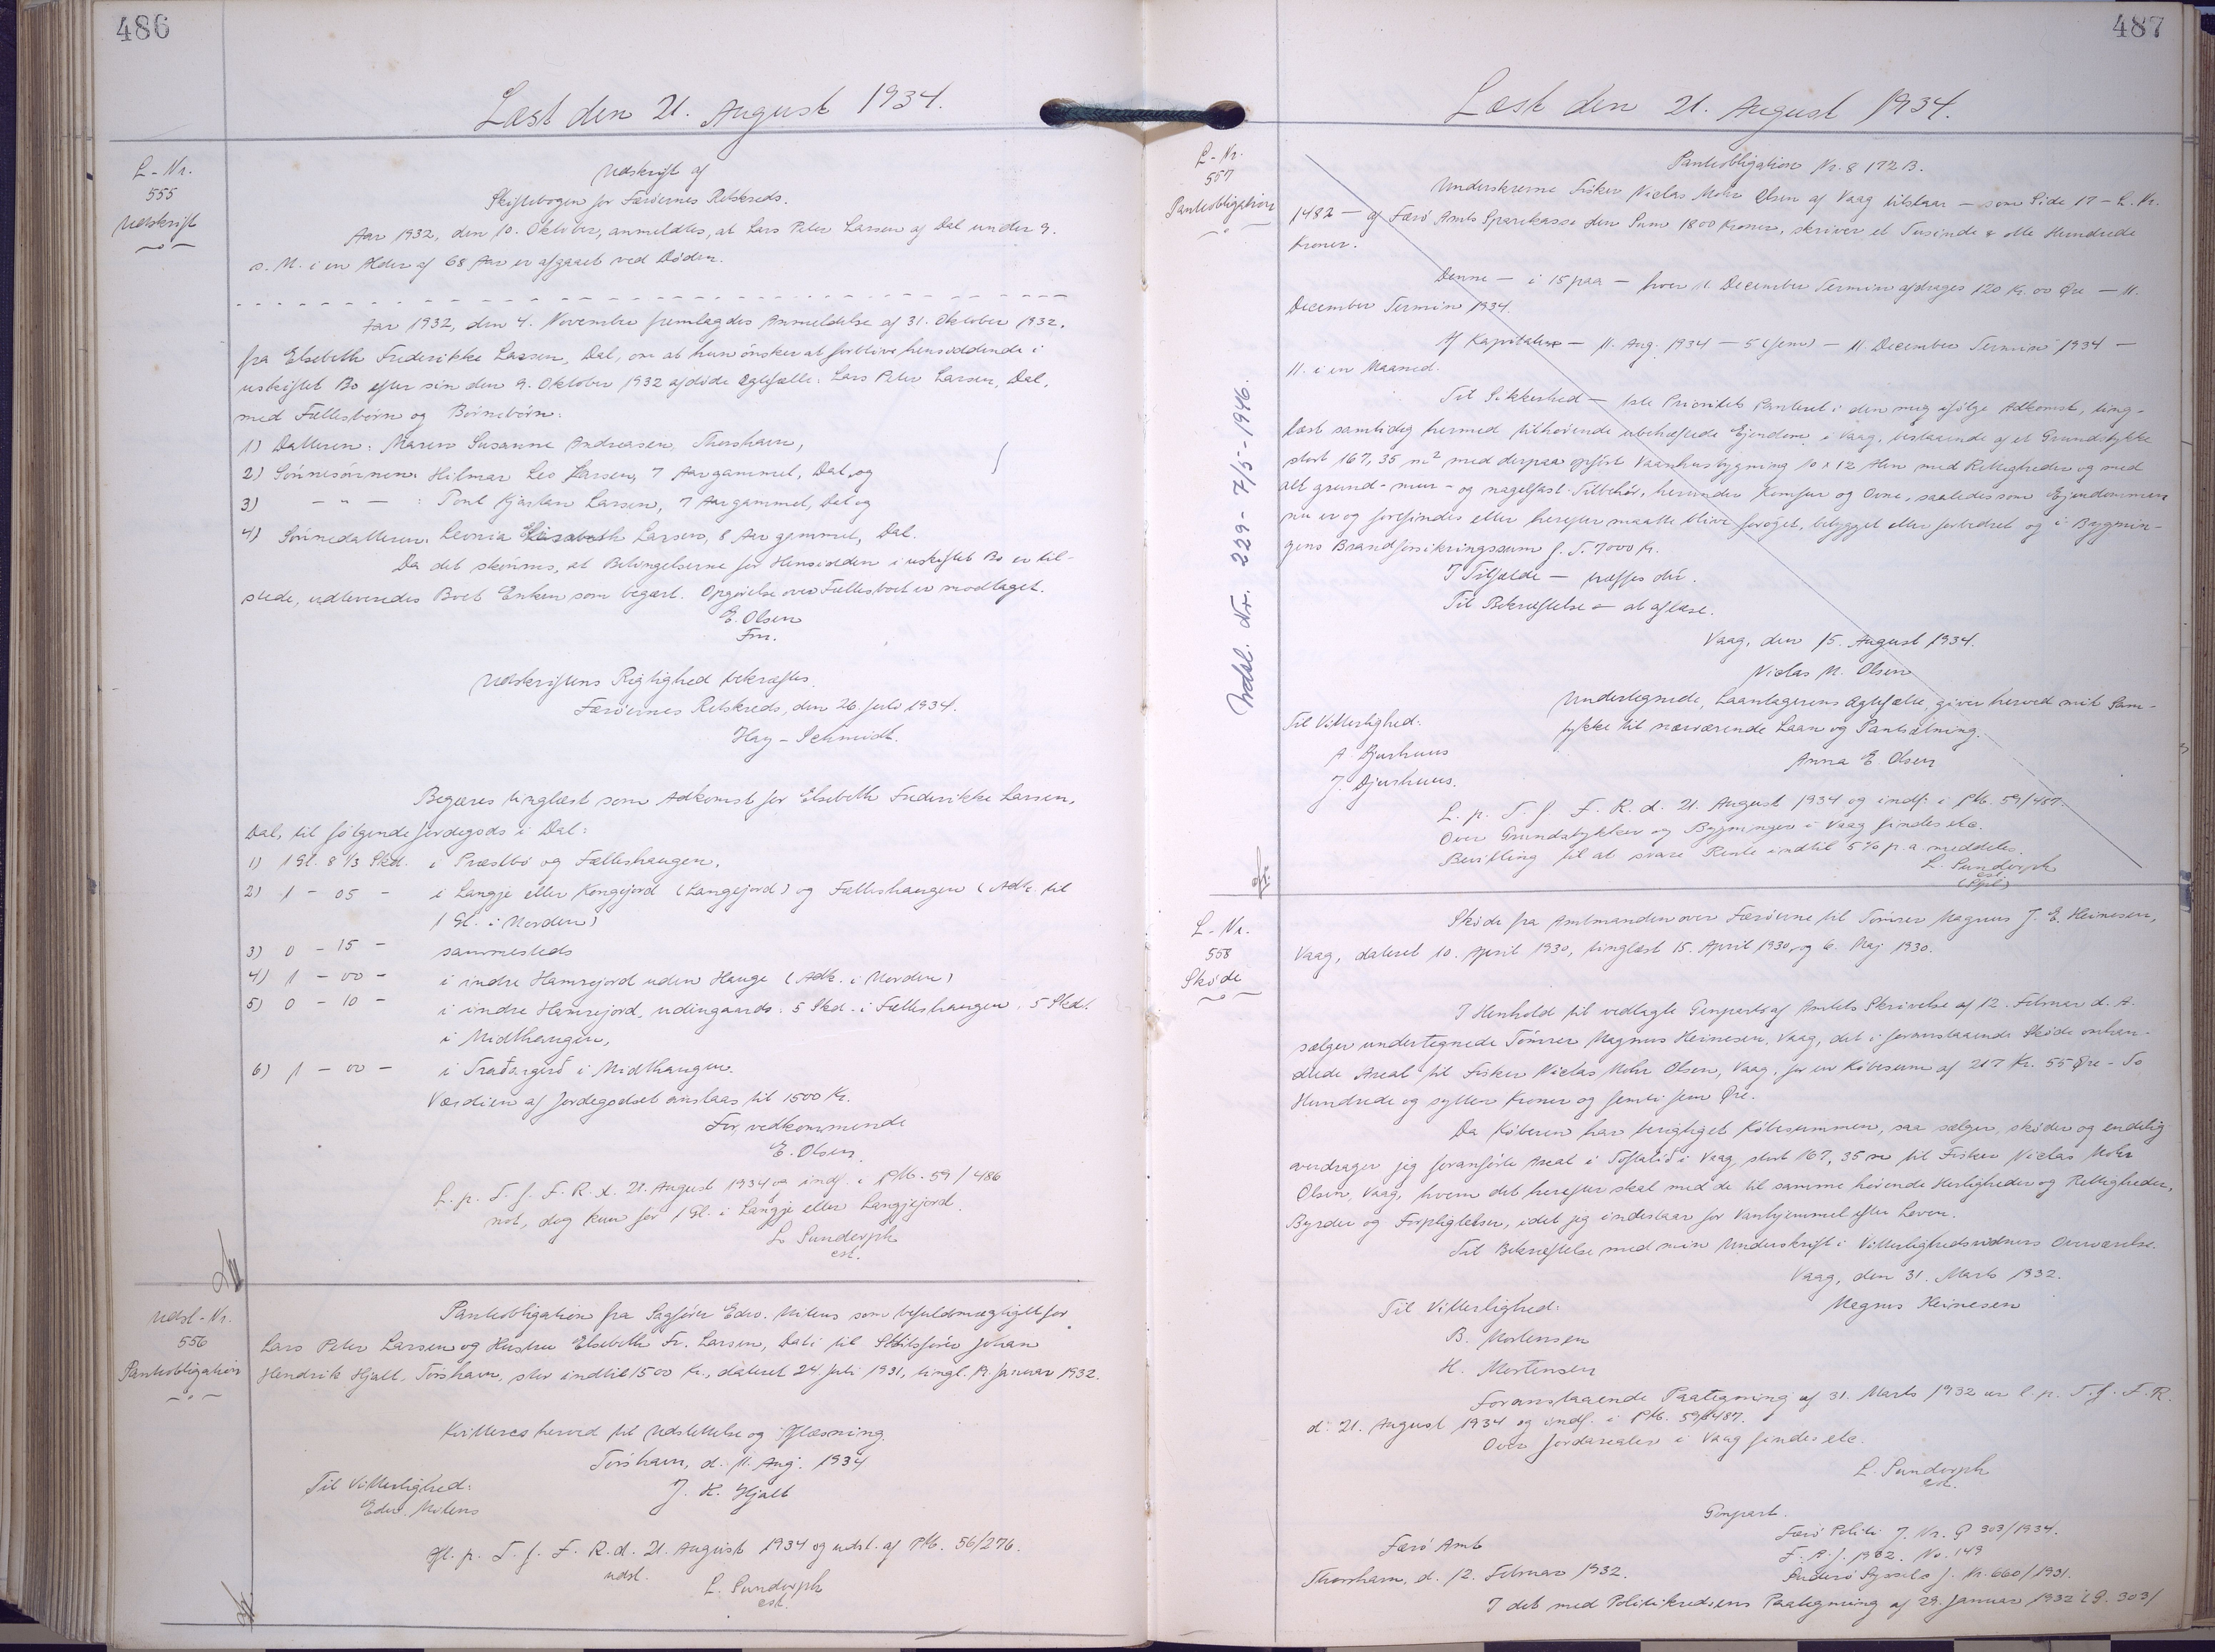 486
Læst den 21. August 1934.
L-Nr.
555
Udskrift
Udskrift af
Skiftebogen for Færöernes Retskreds.
Aar 1932, den 10. Oktober, anmeldtes, at Lars Peter Larsen af Dal under 9.
s. M. i en Alder af 68 Aar er afgaaet ved Döden.
Aar 1932, den 4. November fremlagdes Anmeldelse af 31. Oktober 1932.
fra Elsebeth Frederikke Larsen, Dal, om at hun önsker at forblive hensiddende i
uskiftet Bo efter sin den 9. Oktober 1932 afdöde Ægtefælle: Lars Peter Larsen, Dal,
med Fællesbörn og Börnebörn:
1) Datteren: Maren Susanne Andreasen, Thorshavn,
2) Sönnesönnen: Hilmar Leo Larsen, 7 Aar gammel, Dal, og
3) - " - : Poul Kjartan Larsen, 7 Aar gammel, Dal og
4) Sönnedatteren: Leonia Elisabeth Larsen, 8 Aar gammel, Dal.
Da det skönnes, at Betingelserne for Hensidden i uskiftet Bo er til-
stede, udleveredes Boet Enken som begært. Opgörelse over Fællesboet er modtaget.
E. Olsen
Fm.
Udskriftens Rigtighed bekræftes.
Færöernes Retskreds, den 26. Juli 1934.
Hay-Schmidt.
Begæres tinglæst som Adkomst for Elsebeth Frederikke Larsen,
Dal, til fölgende Jordegods i Dal:
1) 1 Gl. 8 1/3 Skd. i Præstbö og Fælleshaugen,
2) 1 - 05 - i Langje eller Kongejord (Langejord) og Fælleshaugen (Adk. til
1 Gl. i Norden)
3) 0 - 15 - sammesteds
4) 1 - 00 - i indre Hamrejord uden Hauge (Adk. i Norden)
5) 0 - 10 - i indre Hamrejord, udingaards. 5 Skd. i Fælleshaugen, 5 Skd.
i Midthaugen,
6) 1 - 00 - i Traðargerð i Midthaugen.
Værdien af Jordegodset anslaas til 1500 Kr.
For vedkommende
E. Olsen.
L. p. T. f. F. R. d. 21. August 1934 og indf. i PM. 59/486
not, dog kun for 1 Gl. i Langje eller Langjejord.
L. Sundorph
cst.
Udsl-Nr.
556
Pantobligation
Pantobligation fra Sagförer Edw. Mitens som befuldmægtiget for
Lars Peter Larsen og Hustru Elsebeth Fr. Larsen, Dal: til Skibsförer Johan
Hendrik Hjalt, Torshavn, stor indtil 1500 Kr., dateret 24. Juli 1931, tingl. 12. Januar 1932.
Kvitteres herved til Udslettelse og Aflæsning.
Torshavn, d. 11. Aug. 1934
Til Vitterlighed:
J. H. Hjalt
Edw. Mitens
Afl. p. T. f. F. R. d. 21. August 1934 og udsl. af PM. 56/276.
udsl.
L. Sundorph
cst.
487
Læst den 21. August 1934.
L-Nr.
557
Pantobligation
Udsl. Nr. 229- 7/5-1946.
Pantobligation Nr. 8172 B.
Underskrevne Fisker Niclas Mohr Olsen af Vaag tilstaar — som Side 17 - L. Nr.
1482 — af Færö Amts Sparekasse den Sum 1800 Kroner, skriver et Tusinde & otte Hundrede
Kroner.
Denne — i 15 paa — hver 11. December Termin afdrages 120 Kr. 00 Öre — 11.
December Termin 1934.
Af Kapitalen — 11. Aug. 1934 — 5 (fem) — 11. December Termin 1934 —
11. i en Maaned.
Til Sikkerhed — 1ste Prioritets Panteret i den mig ifölge Adkomst, ting-
læst samtidig hermed tilhörende ubehæftede Ejendom i Vaag, bestaaende af et Grundstykke
stort 167,35 m² med derpaa opfört Vaanhusbygning 10 x 12 Alen med Rettigheder og med
alt grund- mur- og nagelfast Tilbehör, herunder Komfur og Ovne, saaledes som Ejendommen
nu er og forefindes eller herefter maatte blive foröget, bebygget eller forbedret og i Bygnin-
gens Brandforsikringssum f. T. 7000 Kr.
I Tilfælde — træffes dér.
Til Bekræftelse — at aflæse.
Vaag, den 15. August 1934.
Niclas M. Olsen
Undertegnede, Laantagerens Ægtefælle, giver herved mit Sam-
tykke til nærværende Laan og Pantsætning.
Til Vitterlighed:
Anna E. Olsen
A. Djurhuus
J. Djurhuus.
L. p. T. f. F. R. d. 21. August 1934 og indf. i PM. 59/487.
Over Grundstykker og Bygninger i Vaag findes etc.
Bevilling til at svare Rente indtil 5% p. a. meddeles.
L. Sundorph
cst.
L-Nr.
558
Sköde
Sköde fra Amtmanden over Færöerne til Tömrer Magnus J. E. Heinesen,
Vaag, dateret 10. April 1930, tinglæst 15. April 1930, og 6. Maj 1930.
I Henhold til vedlagte Genpart af Amtets Skrivelse af 12. Februar d. A.
sælger undertegnede Tömrer Magnus Heinesen, Vaag, det i foranstaaende Sköde omhan-
dlede Areal til Fisker Niclas Mohr Olsen, Vaag, for en Köbesum af 217 Kr. 55 Öre - To
Hundrede og sytten Kroner og femti fem Öre.
Da Köberen har berigtiget Köbesummen, saa sælger, sköder og endelig
overdrager jeg foranförte Areal i Toftalið i Vaag, stort 167,35 m til Fisker Niclas Mohr
Olsen, Vaag, hvem det herefter skal med de til samme hörende Herligheder og Rettigheder,
Byrder og Forpligtelser, idet jeg indestaar for Vanhjemmel efter Loven.
Til Bekræftelse med min Underskrift i Vitterlighedsvidners Overværelse.
Vaag, den 31. Marts 1932.
Til Vitterlighed:
Magnus Heinesen
B. Mortensen
H. Mortensen
Foranstaaende Paategning af 31. Marts 1932 er l. p. T. f. F. R.
d. 21. August 1934 og indf. i PM. 59/487.
Over Jordarealer i Vaag findes etc.
L. Sundorph
cst.
Genpart.
Færö Amt
Færö Politi J. Nr. P 303/1934.
F. A. J. 1932. No. 149
Thorshavn, d. 12. Februar 1932.
Suderö Syssels J. Nr. 660/1931.
I det med Politikredsens Paategning af 29. Januar 1932 i P. 303/